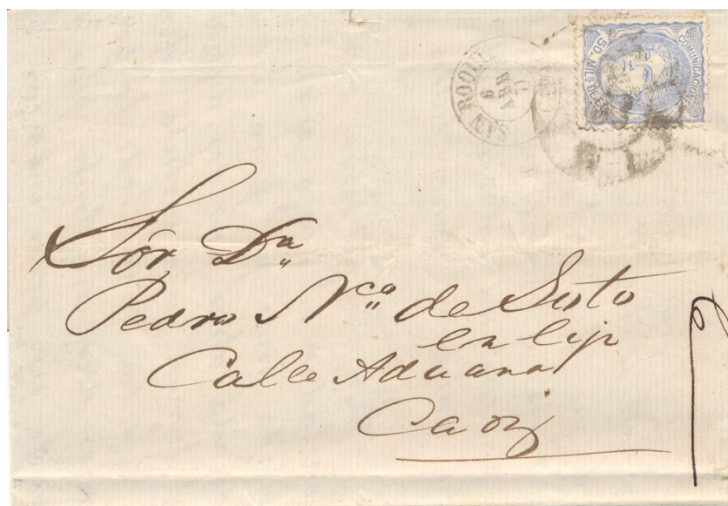 SAN ROQUE
6
ABR
71
COMUNICACIONES
50 MILS DE E
Sór Dn
Pedro Nco de Soto
Calle Aduana
Cadiz